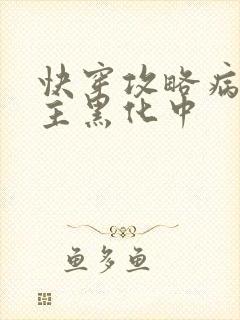 快穿攻略病
主黑化中
鱼多鱼